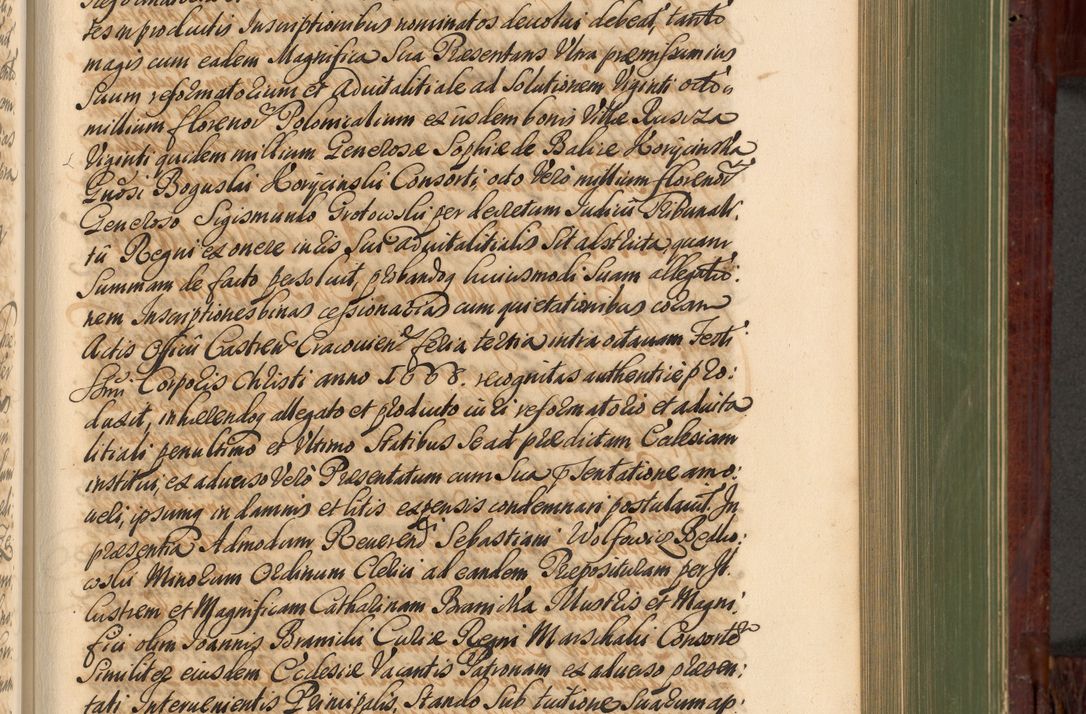 tes in productis Inscriptionibus nominatos devolui debeat, tanto
magis cum eadem Magnifica Sua Præsentans Vltra præmissum ius
suum reformatorium et aduitalitiale ad Solutionem Viginti octo
millium florenor Polonicalium ex iisdem bonis Villæ Ruscza
Viginti quidem millium Generosæ Sophiæ de Balice Korycinska
Gnosi Boguslai Korycinskii Consorti, octo Vero millium florenor
Generoso Sigismundo Grotowskii per decretum Iudicii Tribunali
tii Regni ex onere iuris Sui aduitalitialis Sit abstricta quam
Summam de facto persoluit, probandoq huiusmodi Suam allegatio:
nem Inscriptiones binas cessionarias cum quietationibus coram
Actis Officii Castren Cracouien feria tertia intra octauam Festi
Ssmi Corporis Christi anno 1668. recognitas authentice pro:
duxit, inhærendoq allegato et producto iuri reformatorio et aduita
litiali penultimo et Vltimo Statibus Se ad prædictam Ecclesiam
institui, ex aduerso Vero Præsentatum cum Sua Psentatione amo:
ueri, ipsumq in damnis et litis expensis condemnari postulauit. In
præsentia Admodum Reuerend Sebastiani Wolfowic
coskii Minorum Ordinum Clerici ad eandem Præposituram per Il
lustrem et Magnificam Catharinam Branicka Illustris et Magni
fici olim Ioannis Branicki Curiæ Regni Marshalci Consorte
Similiter eiusdem Ecclesiæ Vacantis Patronam ex aduerso præsen:
tati Interuenientis Principalis, Stando Sub tuitione Suarum ap: